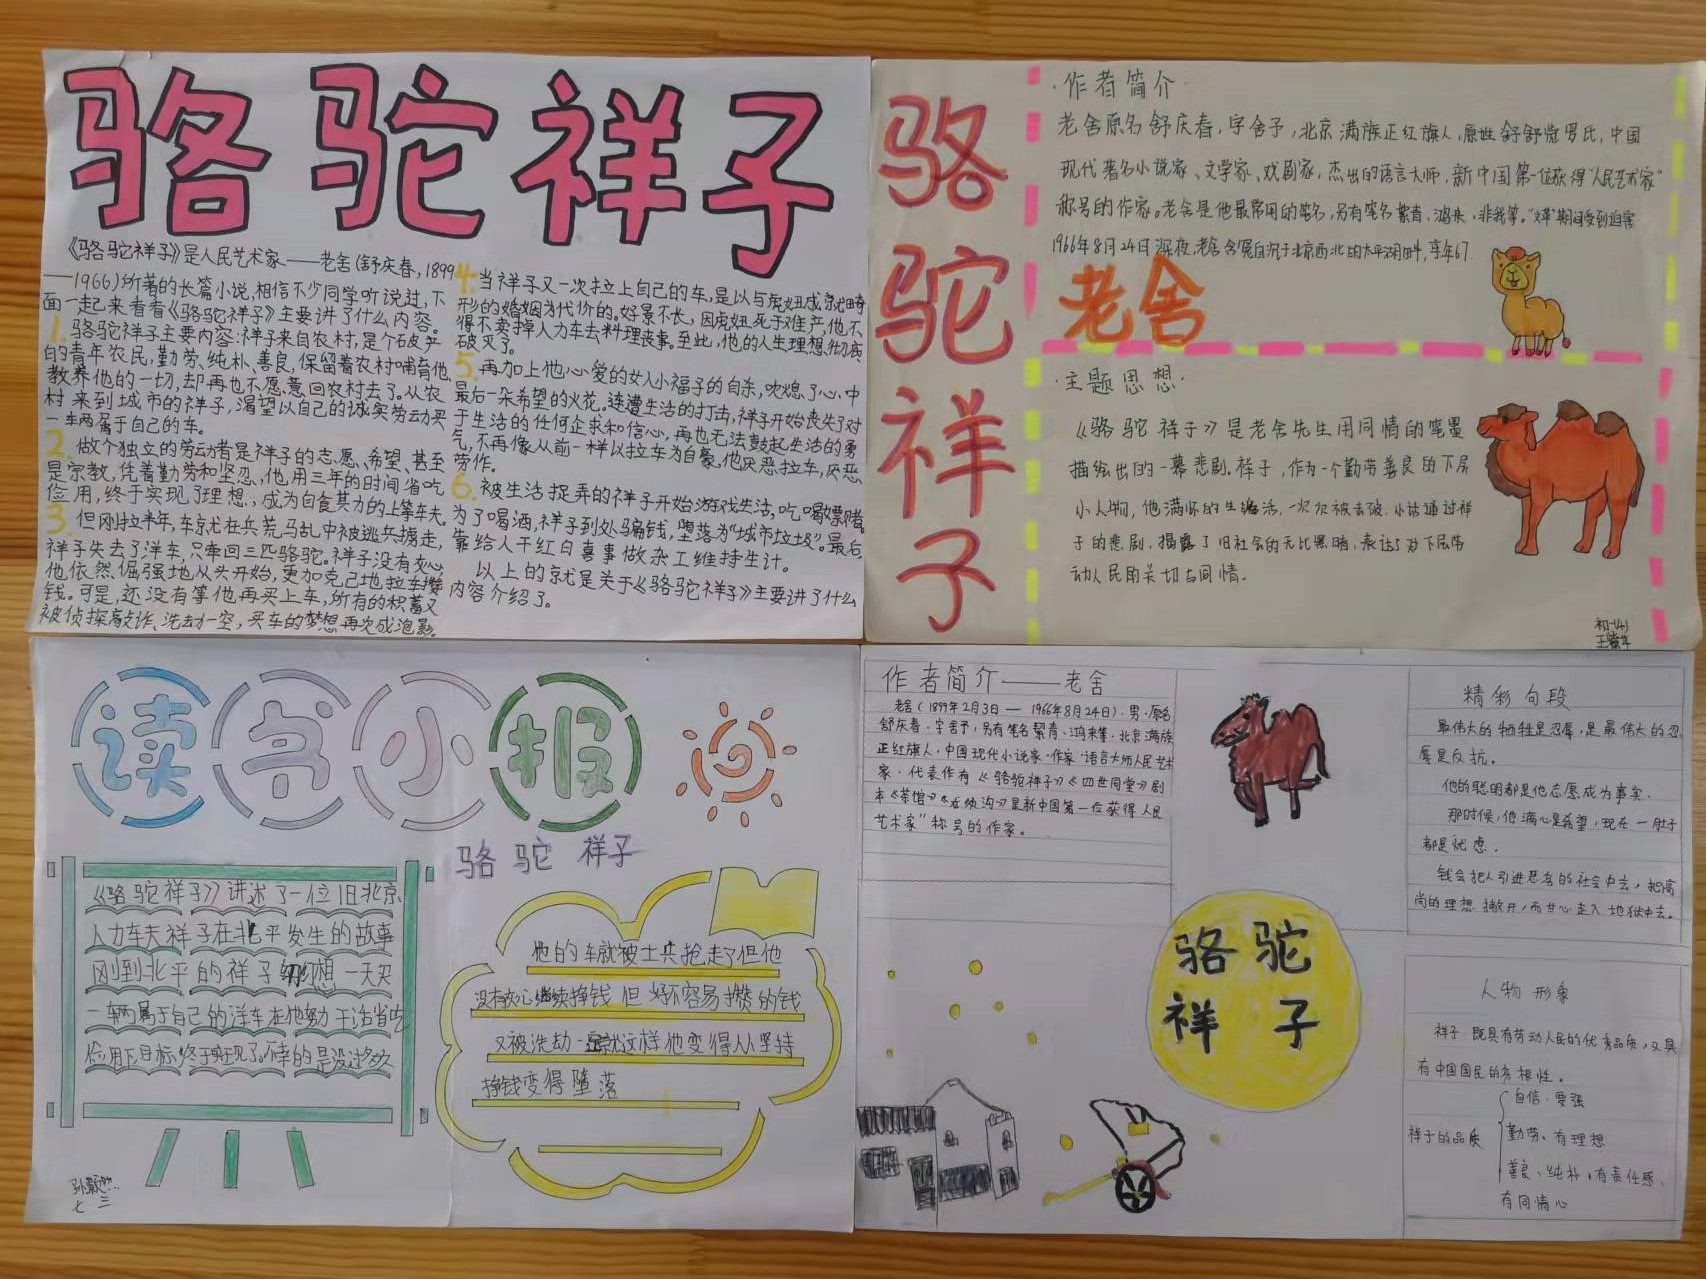 骆驼祥子
《骆驼祥子》是人民艺术家——老舍(舒庆春,1899
——1966)所著的长篇小说,相信不少同学听说过,下
面一起来看看《骆驼祥子》主要讲了什么内容。
1.骆驼祥子主要内容:祥子来自农村,是个破产
的青年农民,勤劳、纯朴、善良,保留着农村哺育他,
教养他的一切,却再也不愿意回农村去了。从农
村来到城市的祥子,渴望以自己的诚实劳动买
一车两属于自己的车。
2.做个独立的劳动者是祥子的志愿、希望、甚至
是宗教,凭着勤劳和坚忍,他用三年的时间省吃
俭用,终于实现了理想,成为自食其力的上等车夫。
3.但刚拉半年,车就在兵荒马乱中被逃兵掳走,
祥子失去了洋车,只牵回三匹骆驼。祥子没有灰心,
他依然倔强地从头开始,更加克己地拉车攒
钱。可是,还没有等他再买上车,所有的积蓄又
被侦探敲诈、洗劫一空,买车的梦想再次成泡影。
4.当祥子又一次拉上自己的车,是以与虎妞成就畸
形的婚姻为代价的。好景不长,因虎妞死于难产,他不
得不卖掉人力车去料理丧事。至此,他的人生理想彻底
破灭了。
5.再加上他心爱的女人小福子的自杀,吹熄了心中
最后一朵希望的火花。连遭生活的打击,祥子开始丧失对
于生活的任何企求和信心,再也无法鼓起生活的勇
气,不再像从前一样以拉车为自豪。他厌恶拉车,厌恶
劳作。
6.被生活捉弄的祥子开始游戏生活,吃喝嫖赌。
为了喝酒,祥子到处骗钱,堕落为“城市垃圾”。最后,
靠给人干红白喜事做杂工维持生计。
以上的就是关于《骆驼祥子》主要讲了什么
内容介绍了。
骆驼祥子
·作者简介·
老舍原名舒庆春,字舍予,北京满族正红旗人,原姓舒舒觉罗氏,中国
现代著名小说家、文学家、戏剧家,杰出的语言大师,新中国第一位获得“人民艺术家”
称号的作家。老舍是他最常用的笔名,另有笔名絜青、鸿来、非我等。“文革”期间受到迫害
1966年8月24日深夜,老舍含冤自沉于北京西北的太平湖畔,享年67.
老舍
·主题思想·
《骆驼祥子》是老舍先生用同情的笔墨
描绘出的一幕悲剧.祥子,作为一个勤劳善良的下层
小人物,他满怀的生活,一次次被击破,小说通过祥
子的悲剧,揭露了旧社会的无比黑暗,表达了对下层劳
动人民的关切与同情.
读书小报
骆驼祥子
《骆驼祥子》讲述了一位旧北京
人力车夫祥子在北平发生的故事
刚到北平的祥子幻想一天买
一辆属于自己的洋车在他努干活省吃
俭用下目标终于实现了。不幸的是没过多久
他的车就被士兵抢走了但他
没有灰心继续挣钱但好不容易攒的钱
又被洗劫一空就这样他变得从坚持
挣钱变得堕落
七 三
作者简介——老舍
老舍(1899年2月3日—1966年8月24日).男.原名
舒庆春.字舍予,另有笔名絜青、鸿来等.北京满族
正红旗人.中国现代小说家.作家.语言大师人民艺术
家.代表作有《骆驼祥子》《四世同堂》剧
本《茶馆》《龙须沟》是新中国第一位获得“人民
艺术家”称号的作家。
骆驼
祥子
精彩句段
最伟大的牺牲是忍辱,是最伟大的忍
辱是反抗。
他的聪明都是他志愿成为事实.
那时候,他满心是希望,现在一肚子
都是忧虑.
钱会把人引进恶劣的社会中去,把高
尚的理想撇开,而甘心走入地狱中去。
人物形象
祥子既具有劳动人民的优秀品质,又具
有中国国民的劣根性。
祥子的品质
自信.要强
勤劳、有理想
善良、纯朴、有责任感、
有同情心